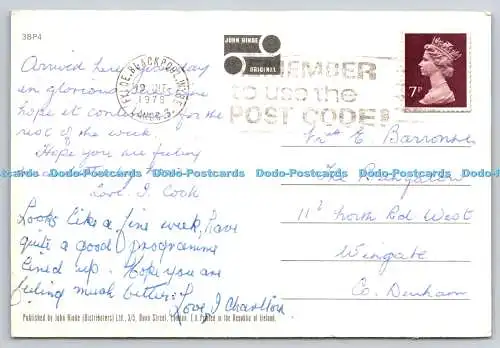 3BP4
JOHN HINDE
ORIGINAL
FYLDE, BLACKPOOL
1979
REMEMBER
to use the
POST CODE
7P
Arrived here
in glorious
hope it for the
rest of the week.
Hope you are feeling
Love. J. Cook
Looks like a fine week, have
quite a good programme
lined up. Hope you are
feeling much better. Love, J Charlton.
E Barron
The Bungalow
North Rd West
Wingate
Co. Durham
Dodo-Postcards Dodo-Postcards Dodo-Postcards Dodo-Postcards Dodo-Postcards
Published by John Hinde (Distributors) Ltd., 3/5, Street, London. E.8 Printed in the Republic of Ireland.